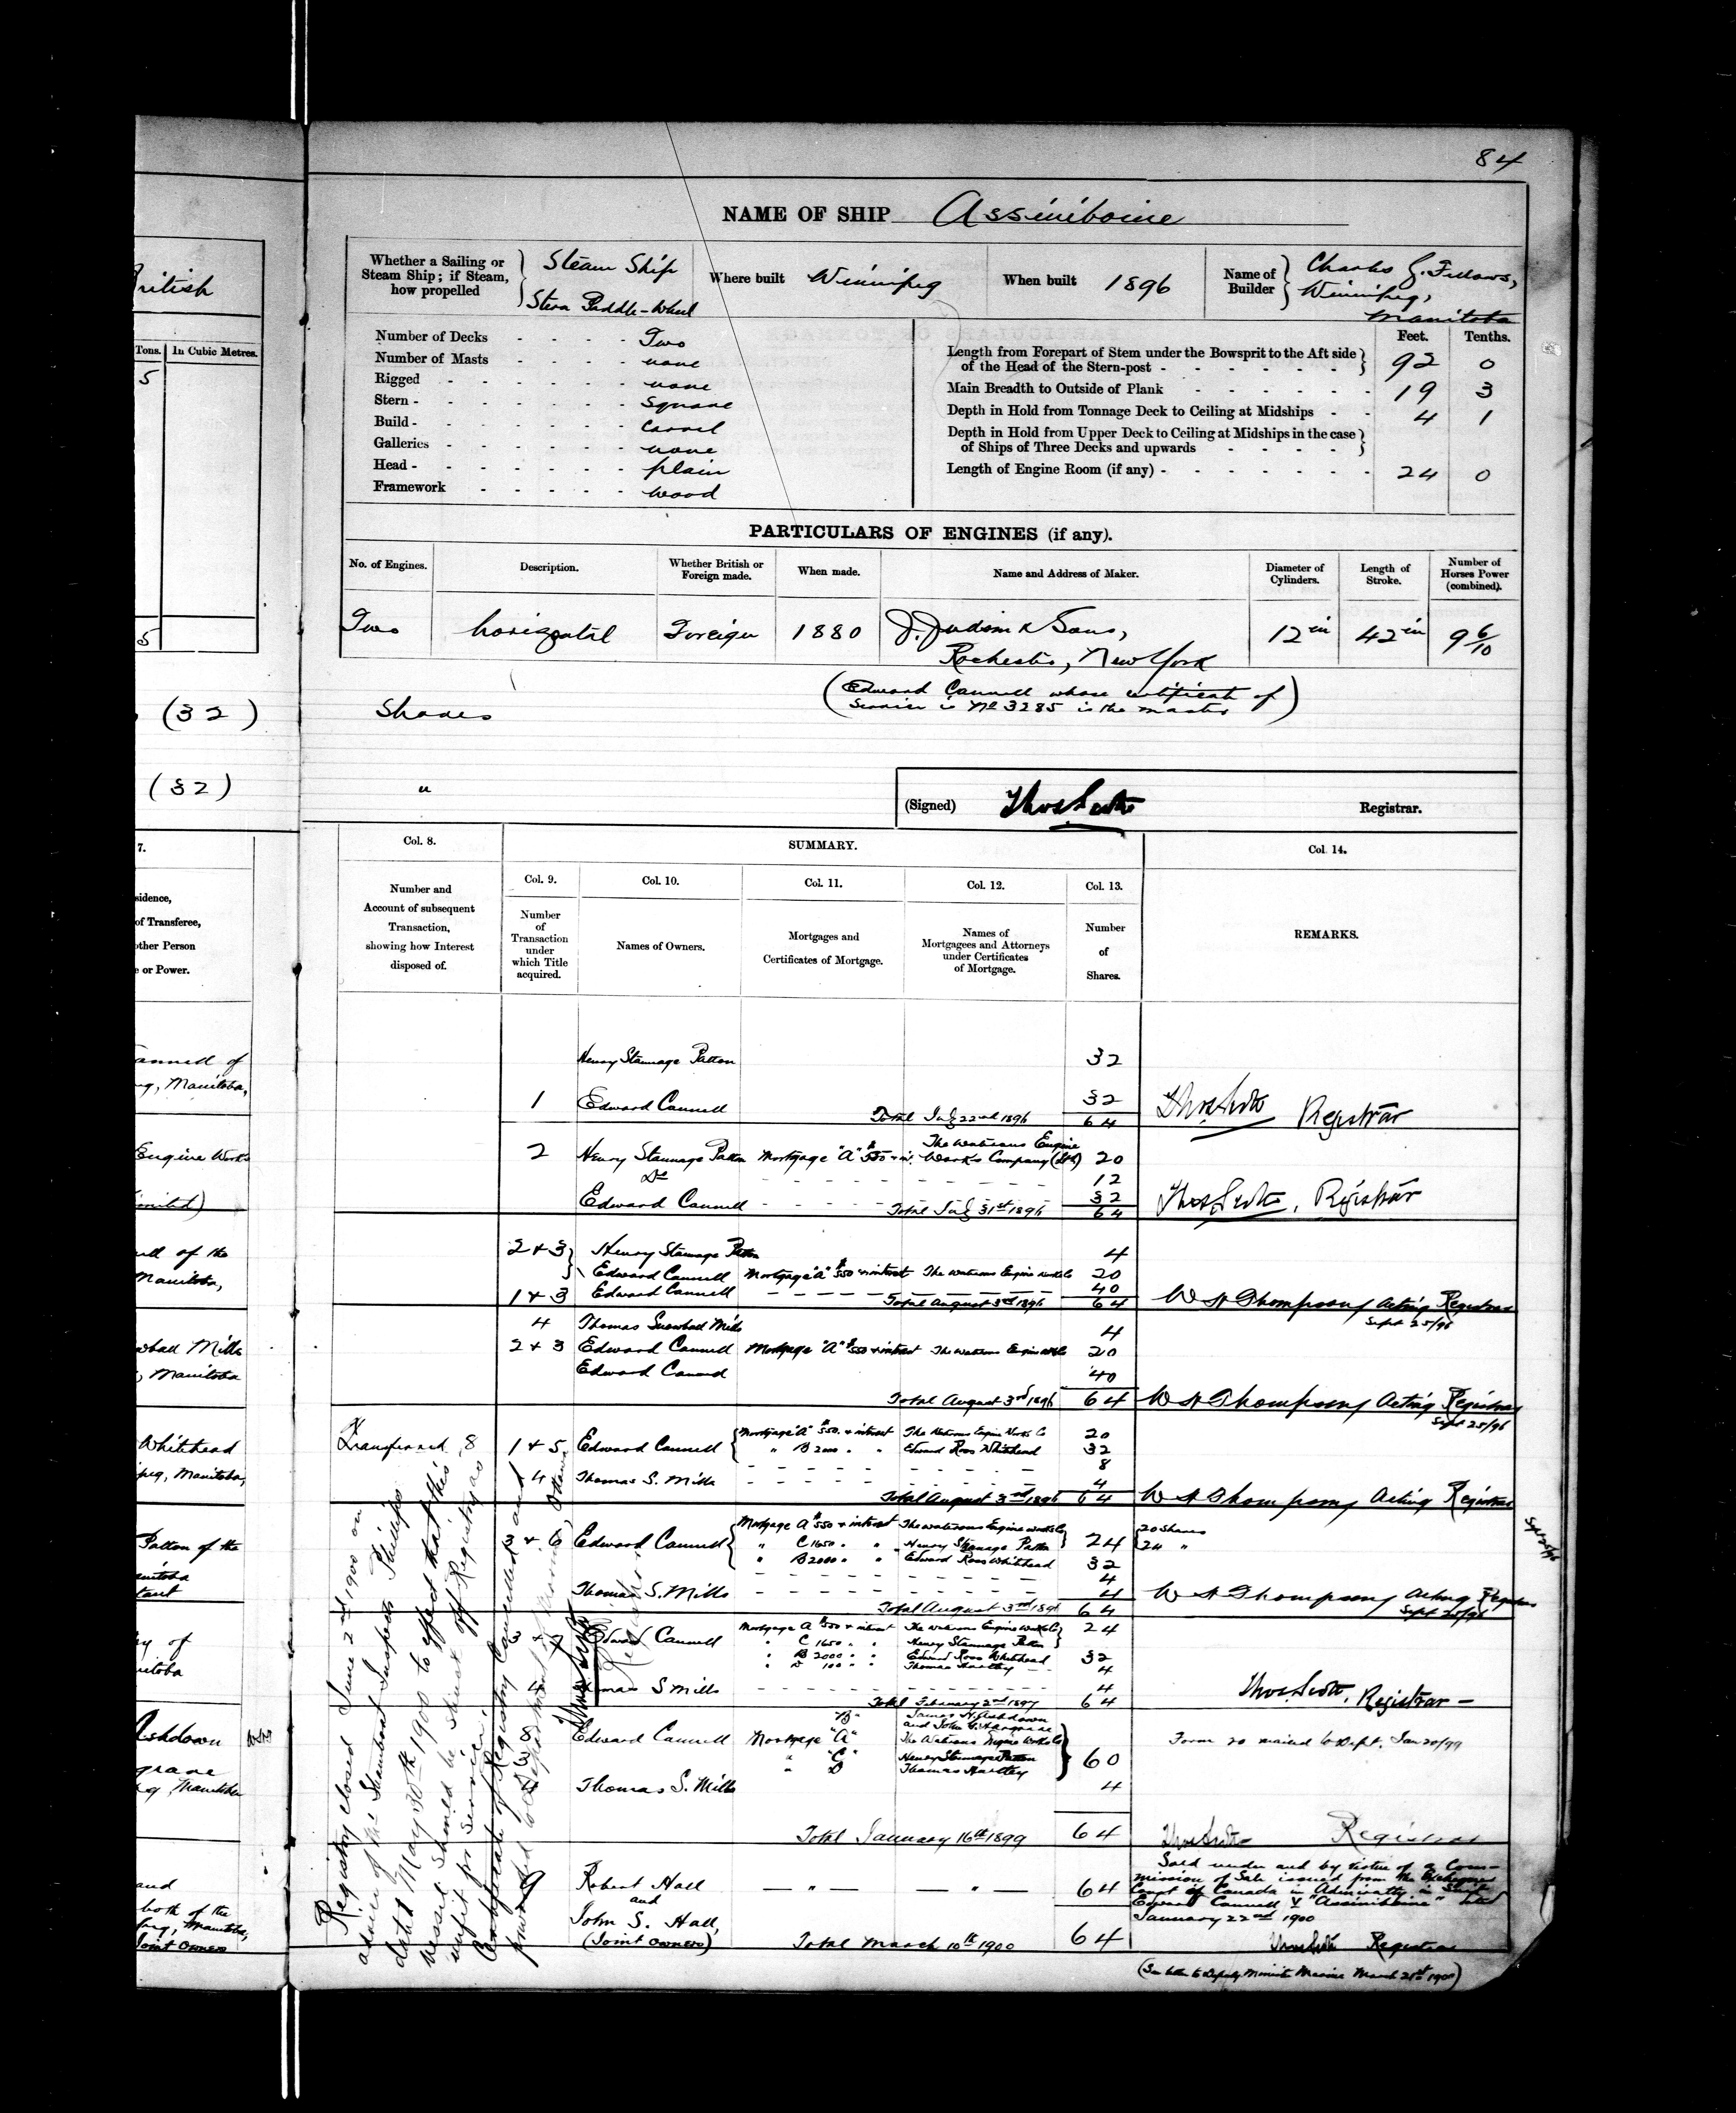 84
NAME OF SHIP Assiniboine
Whether a Sailing or
Steam Ship; if Steam,
how propelled
Steam Ship
Stern Paddle-Wheel
Where built Winnipeg
When built 1896
Name of
Builder
Charles
Winnipeg,
Manitoba
British
Tons. In Cubic Metres.
5
5
Number of Decks - - - - Two
Number of Masts - - - - none
Rigged - - - - - none
Stern - - - - - - square
Build - - - - - - carvel
Galleries - - - - - none
Head - - - - - - plain
Framework - - - - - wood
Feet. Tenths.
Length from Forepart of Stem under the Bowsprit to the Aft side
of the Head of the Stern-post - - - - - - 92 0
Main Breadth to Outside of Plank - - - - - - 19 3
Depth in Hold from Tonnage Deck to Ceiling at Midships - - 4 1
Depth in Hold from Upper Deck to Ceiling at Midships in the case
of Ships of Three Decks and upwards - - - -
Length of Engine Room (if any) - - - - - - - 24 0
PARTICULARS OF ENGINES (if any).
No. of Engines. Description. Whether British or
Foreign made. When made. Name and Address of Maker. Diameter of
Cylinders. Length of
Stroke. Number of
Horses Power
(combined).
Two horizontal Foreign 1880 J. Judson & Sons,
Rochester, New York
12 in 42 in 9 6/10
(Edward Cannell whose certificate of
Service is No 3285 is the master)
(32) Shares
(32) "
(Signed) Thos Scott Registrar.
7.
sidence,
of Transferee,
other Person
e or Power.
Col. 8.
Number and
Account of subsequent
Transaction,
showing how Interest
disposed of.
SUMMARY.
Col. 9.
Number
of
Transaction
under
which Title
acquired.
Col. 10.
Names of Owners.
Col. 11.
Mortgages and
Certificates of Mortgage.
Col. 12.
Names of
Mortgagees and Attorneys
under Certificates
of Mortgage.
Col. 13.
Number
of
Shares.
Col. 14.
REMARKS.
Henry Stannage Patton 32
annell of
eg, Manitoba,
1 Edward Cannell 32
Total July 22nd 1896 64
Thos Scott Registrar
Engine Works
imited)
2 Henry Stannage Patton Mortgage "A" $550 & in. The Waterous Engine
Works Company (Ltd) 20
Do - - - - - - 12
Edward Cannell - - - - - 32
Total July 31st 1896 64
Thos Scott, Registrar
ell of the
Manitoba,
2 & 3 Henry Stannage Patton 4
Edward Cannell Mortgage "A" $550 & interest The Waterous Engine Works Co 20
1 & 3 Edward Cannell - - - - - - 40
Total August 3rd 1896 64
W H Thompson, Acting Registrar
Sept 25/96
wball Mills
, Manitoba
4 Thomas Snowball Mills 4
2 & 3 Edward Cannell Mortgage "A" $550 & interest The Waterous Engine Works Co 20
Edward Cannell 40
Total August 3rd 1896 64
W H Thompson, Acting Registrar
Sept 25/96
Whitehead
peg, Manitoba,
Transferred, 8
1 & 5 Edward Cannell Mortgage "A" $550. & interest The Waterous Engine Works Co 20
" B 2000 " " Edward Ross Whitehead 32
- - - - - - 8
4 Thomas S. Mills - - - - - - 4
Total August 3rd 1896 64
W H Thompson, Acting Registrar
Sept 25/96
Patton of the
anitoba
3 & 6 Edward Cannell Mortgage A $550 & interest The Waterous Engine Works Co
" C 1650 " " Henry Stannage Patton 24
" B 2000 " " Edward Ross Whitehead 32
- - - - - - 4
20 Shares
24 "
Thomas S. Mills - - - - - - 4
Total August 3rd 1896 64
W H Thompson, Acting Registrar
Sept 25/96
ry of
nitoba
Edward Cannell Mortgage A $550 & interest The Waterous Engine Works Co 24
" C 1650 " " Henry Stannage Patton
" B 2000 " " Edward Ross Whitehead 32
" D 100 " " Thomas Hartley 4
4 Thomas S Mills - - - - - - 4
Total February 2nd 1897 64
Thos Scott, Registrar -
Ashdown
grave
eg, Manitoba
8 Edward Cannell Mortgage "B" James H. Ashdown
and John G. Hargrave
"A" The Waterous Engine Works Co
" "C" Henry Stannage Patton
" D Thomas Hartley
60
Thomas S. Mills 4
Form 20 mailed to Dept. Jan 20/99
Total January 16th 1899 64
Thos Scott Registrar
and
both of the
peg, Manitoba,
Joint owners
9 Robert Hall
and
John S. Hall,
(Joint owners)
— " — — " — 64
Total March 10th 1900 64
Sold under and by virtue of a Com-
mission of Sale issued from the Exchequer
Court of Canada in Admiralty in Suit
Edward Cannell V "Assiniboine" dated
January 22nd 1900
Thos Scott Registrar
(See letter to Deputy Minister Marine March 21st 1900)
Registry closed June 2nd 1900 on
advice of Mr Steamboat Inspector Phillips
dated May 30th 1900 to effect that this
vessel should be struck off Registry as
unfit for service.
Certificate of Registry Cancelled and
forwarded to Department Marine, Ottawa
Thos Scott
Registrar